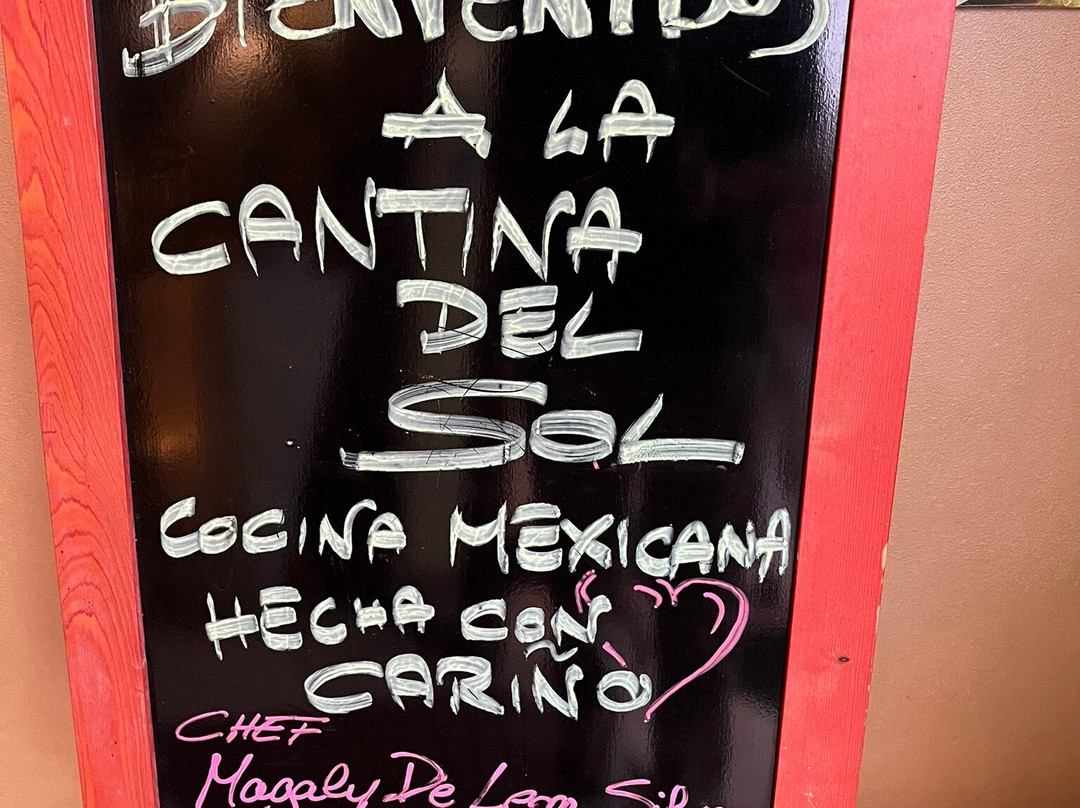 BIENVENIDOS
A LA
CANTINA
DEL
SOL
COCINA MEXICANA
HECHA CON
CARIÑO
CHEF
Magaly De Leon